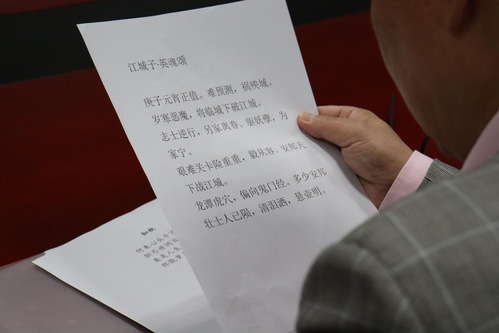 江城子·英魂颂
庚子元宵正值。难预测，祸殃城。
岁寒恶魔，将临城下破江城。
志士逆行，另家离眷。张妖孽，为
家宁。
艰难关卡险重重，毅从容。安邦天
下战江城。
龙潭虎穴，偏向鬼门经。多少安邦
壮士人已陨，清泪洒，悬壶明。